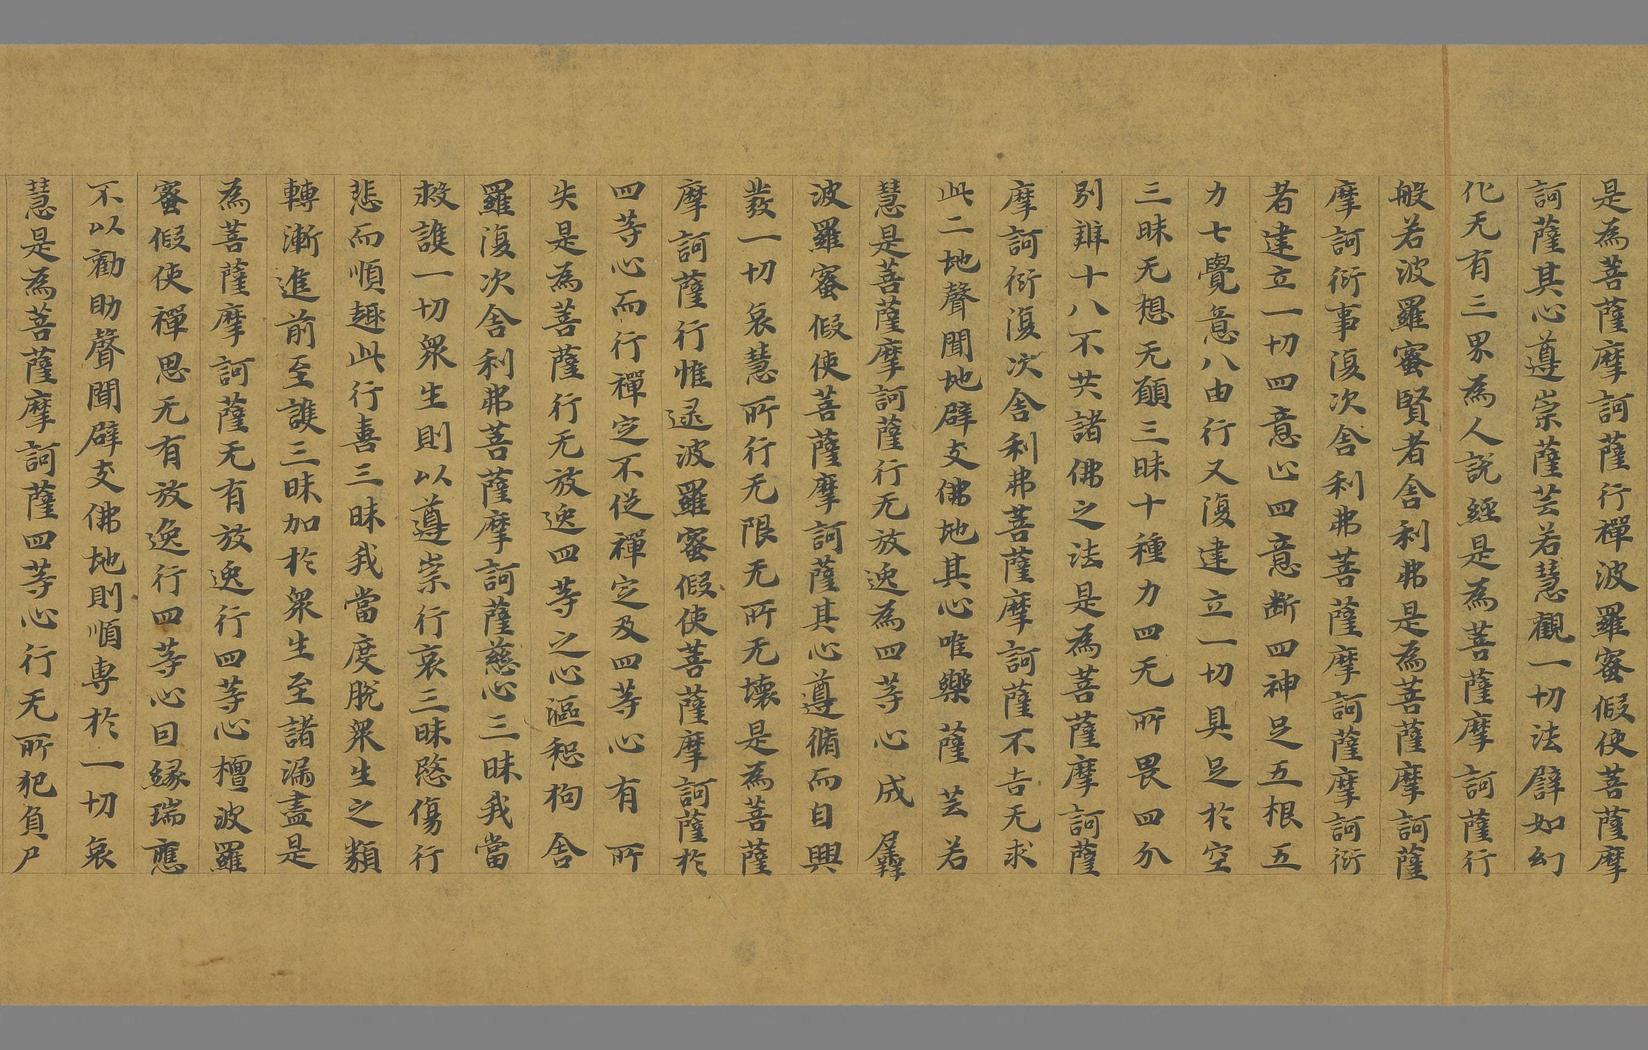 是為菩薩摩訶薩行禪波羅蜜假使菩薩摩
訶薩其心遵崇薩芸若慧觀一切法譬如幻
化无有三界為人說經是為菩薩摩訶薩行
般若波羅蜜賢者舍利弗是為菩薩摩訶薩
摩訶衍事復次舍利弗菩薩摩訶薩摩訶衍
者建立一切四意止四意断四神足五根五
力七覺意八由行又復建立一切具足於空
三昧无想无願三昧十種力四无所畏四分
別辯十八不共諸佛之法是為菩薩摩訶薩
摩訶衍復次舍利弗菩薩摩訶薩不吉无求
此二地聲聞地辟支佛地其心唯樂薩芸若
慧是菩薩摩訶薩行无放逸為四等心成羼
波羅蜜假使菩薩摩訶薩其心遵脩而自興
發一切哀慧所行无限无所无壞是為菩薩
摩訶薩行惟逮波羅蜜假使菩薩摩訶薩於
四等心而行禪定不從禪定及四等心有所
失是為菩薩行无放逸四等之心漚惒拘舍
羅復次舍利弗菩薩摩訶薩慈心三昧我當
救護一切衆生則以遵崇行哀三昧愍傷行
悲而順趣此行喜三昧我當度脫衆生之類
轉漸進前至護三昧加於衆生至諸漏盡是
為菩薩摩訶薩无有放逸行四等心檀波羅
蜜假使禪思无有放逸行四等心回緣瑞應
不以勸助聲聞辟支佛地則順專於一切哀
慧是為菩薩摩訶薩四等心行无所犯負尸